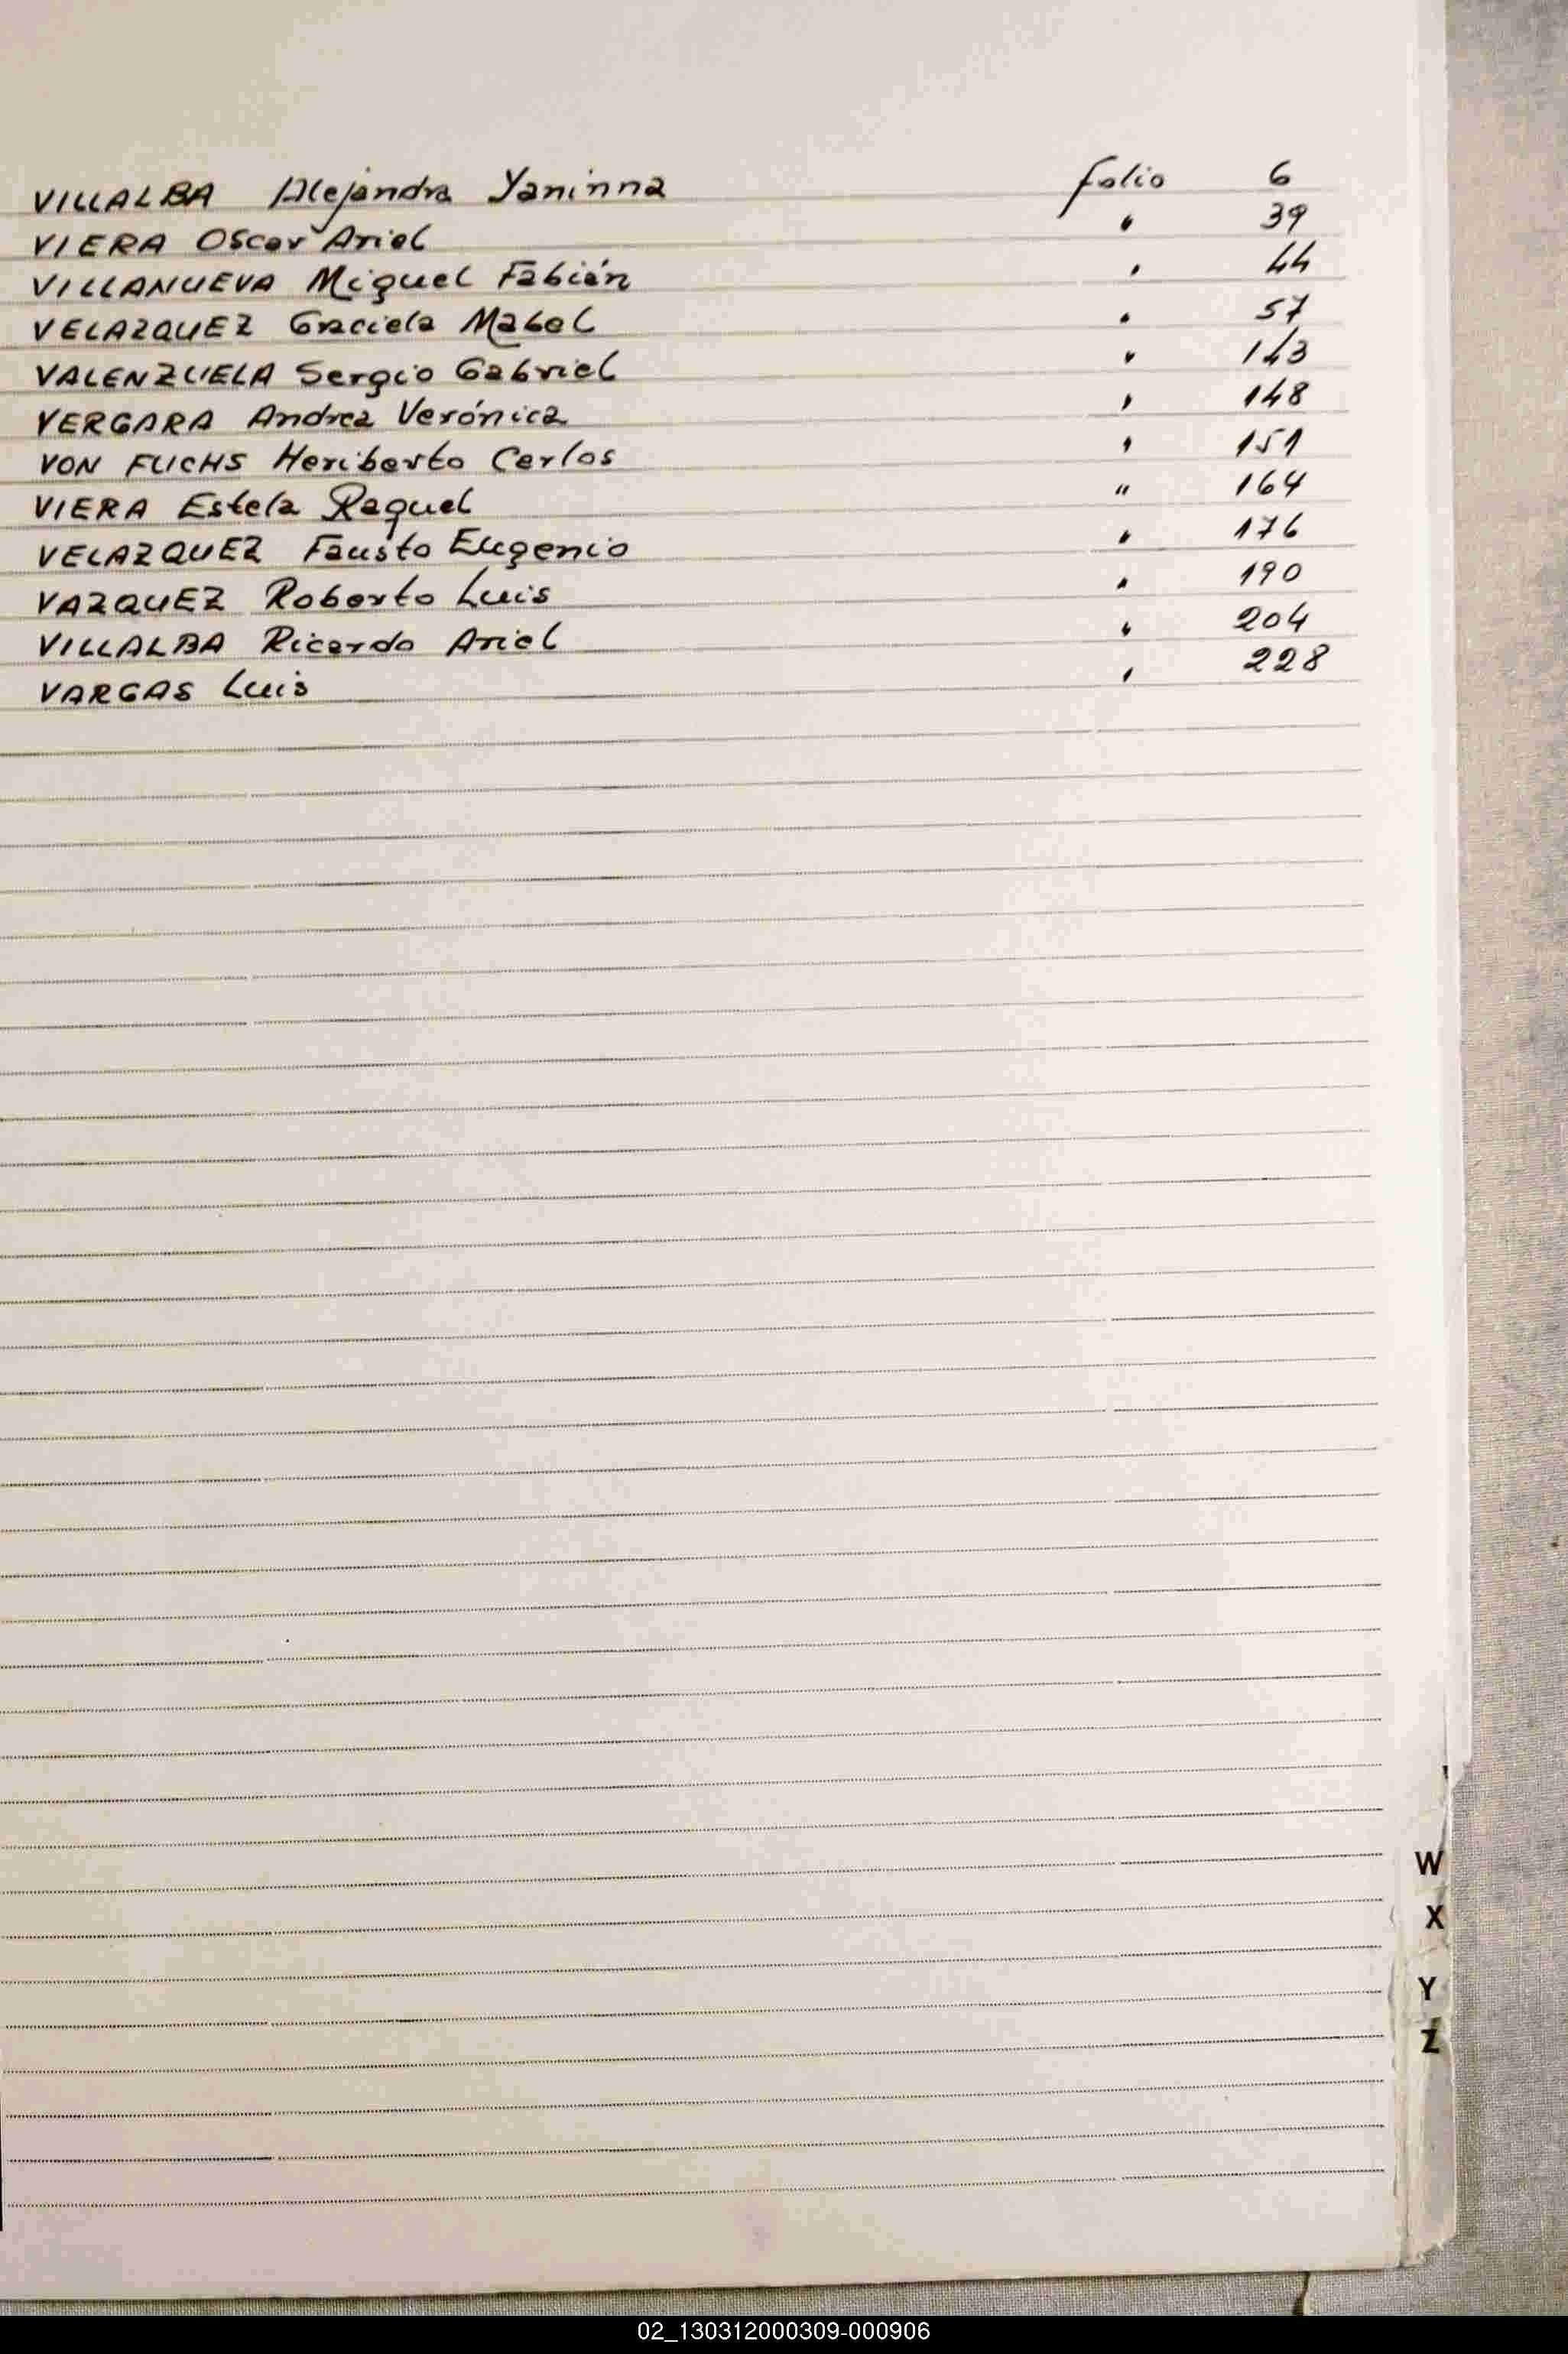 VILLALBA Alejandra Yaninna folio 6
VIERA Oscar Ariel " 39
VILLANUEVA Miguel Fabián " 44
VELAZQUEZ Graciela Mabel " 57
VALENZUELA Sergio Gabriel " 143
VERGARA Andrea Verónica " 148
VON FUCHS Heriberto Carlos " 151
VIERA Estela Raquel " 164
VELAZQUEZ Fausto Eugenio " 176
VAZQUEZ Roberto Luis " 190
VILLALBA Ricardo Ariel " 204
VARGAS Luis " 228
W
X
Y
Z
02_130312000309-000906